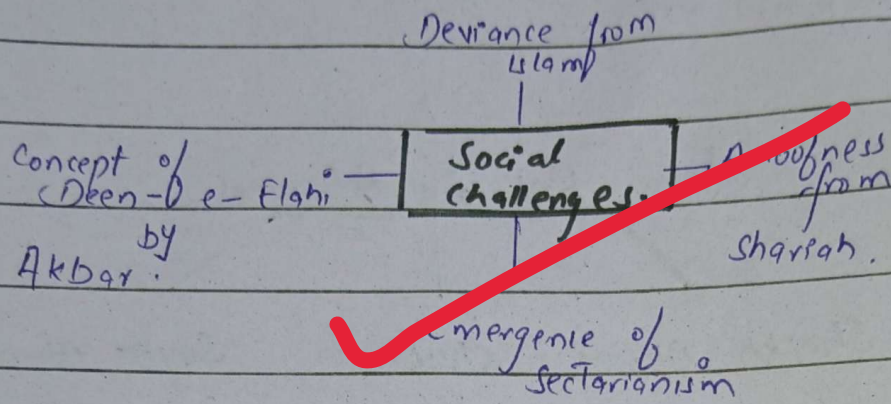 Deviance from
Islam
Concept of
Deen-e-Elahi
by
Akbar.
Social
Challenges.
Aloofness
from
Shariah.
Emergence of
Sectarianism